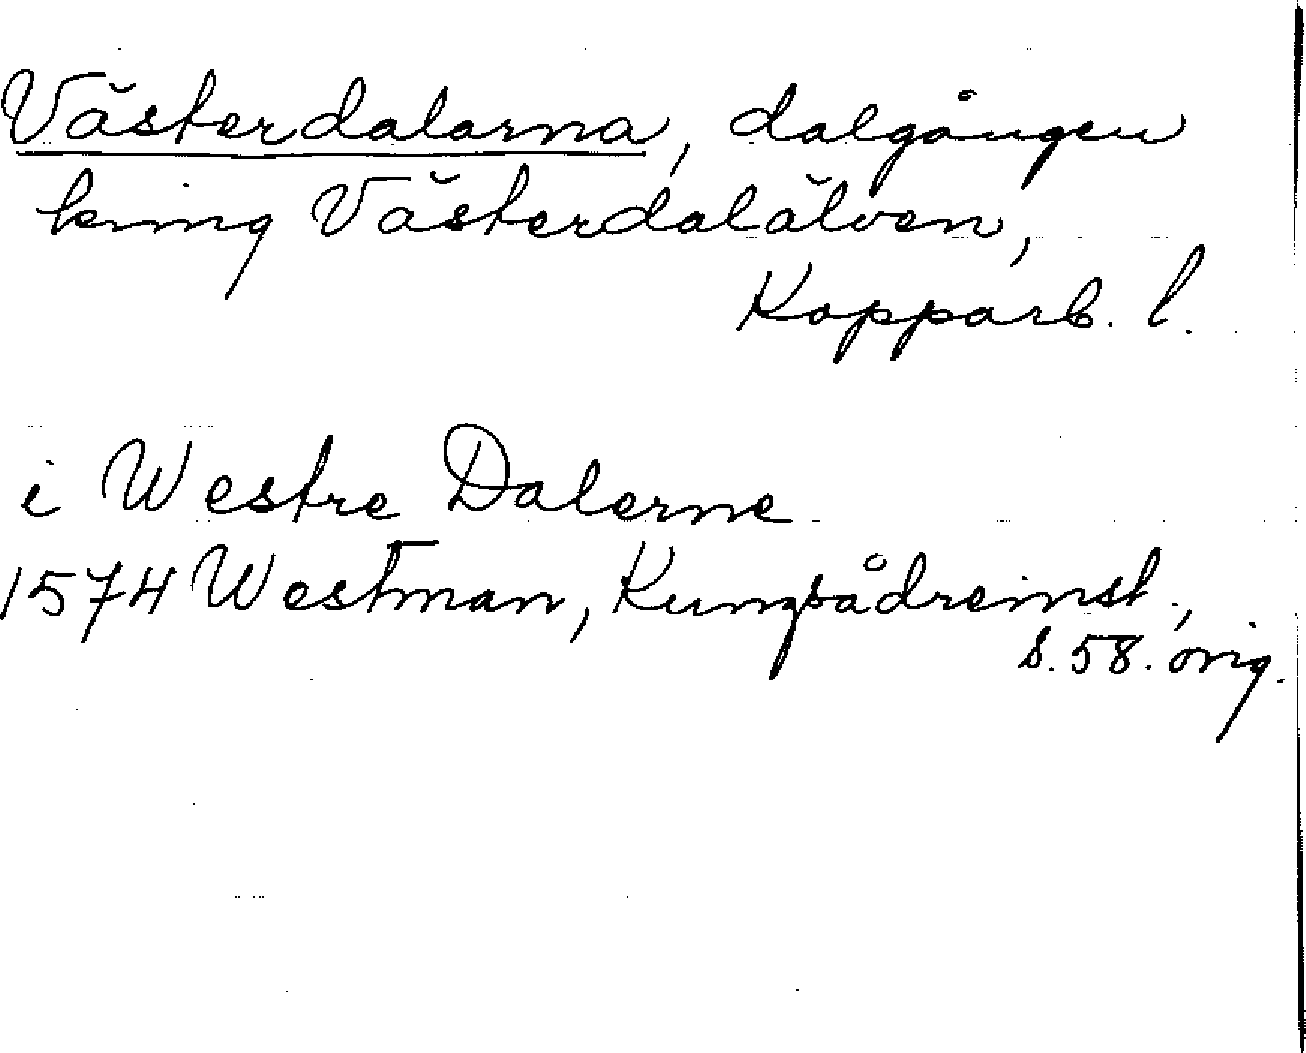 Västerdalarna, dalgången
kring Västerdalälven,
Kopparb. l.
i Westre Dalerne
1574 Westman, Kungsådreinst.,
s. 58. orig.